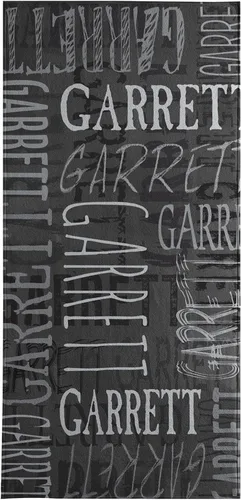 GARRETT
GARRETT
GARRE
GARRETT
GARRETT
GARRETT
GARRETT
GARRE
GARRETT
GARRETT
GARRE
GARRETT
GARRETT
GARRETT
GARRETT
GARRETT